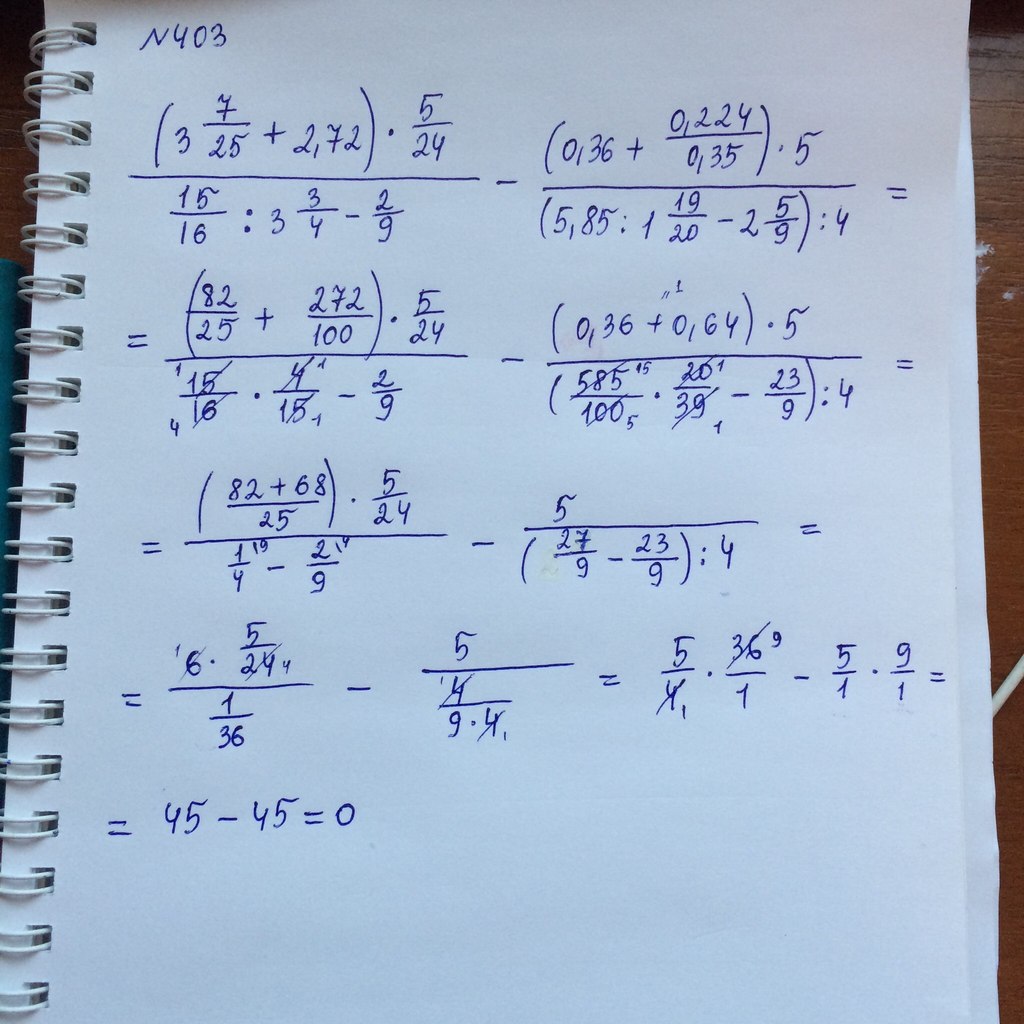 N403
((3 7/25 + 2,72) · 5/24) / (15/16 : 3 3/4 − 2/9) − ((0,36 + 0,224/0,35) · 5) / ((5,85 : 1 19/20 − 2 5/9) : 4) =
= ((82/25 + 272/100) · 5/24) / (15/16 · 4/15 − 2/9) − ((0,36 + 0,64) · 5) / ((585/100 · 20/39 − 23/9) : 4) =
= (((82 + 68)/25) · 5/24) / (1/4 − 2/9) − 5 / ((27/9 − 23/9) : 4) =
= (6 · 5/24) / (1/36) − 5 / (4/(9 · 4)) = 5/4 · 36/1 − 5/1 · 9/1 =
= 45 − 45 = 0